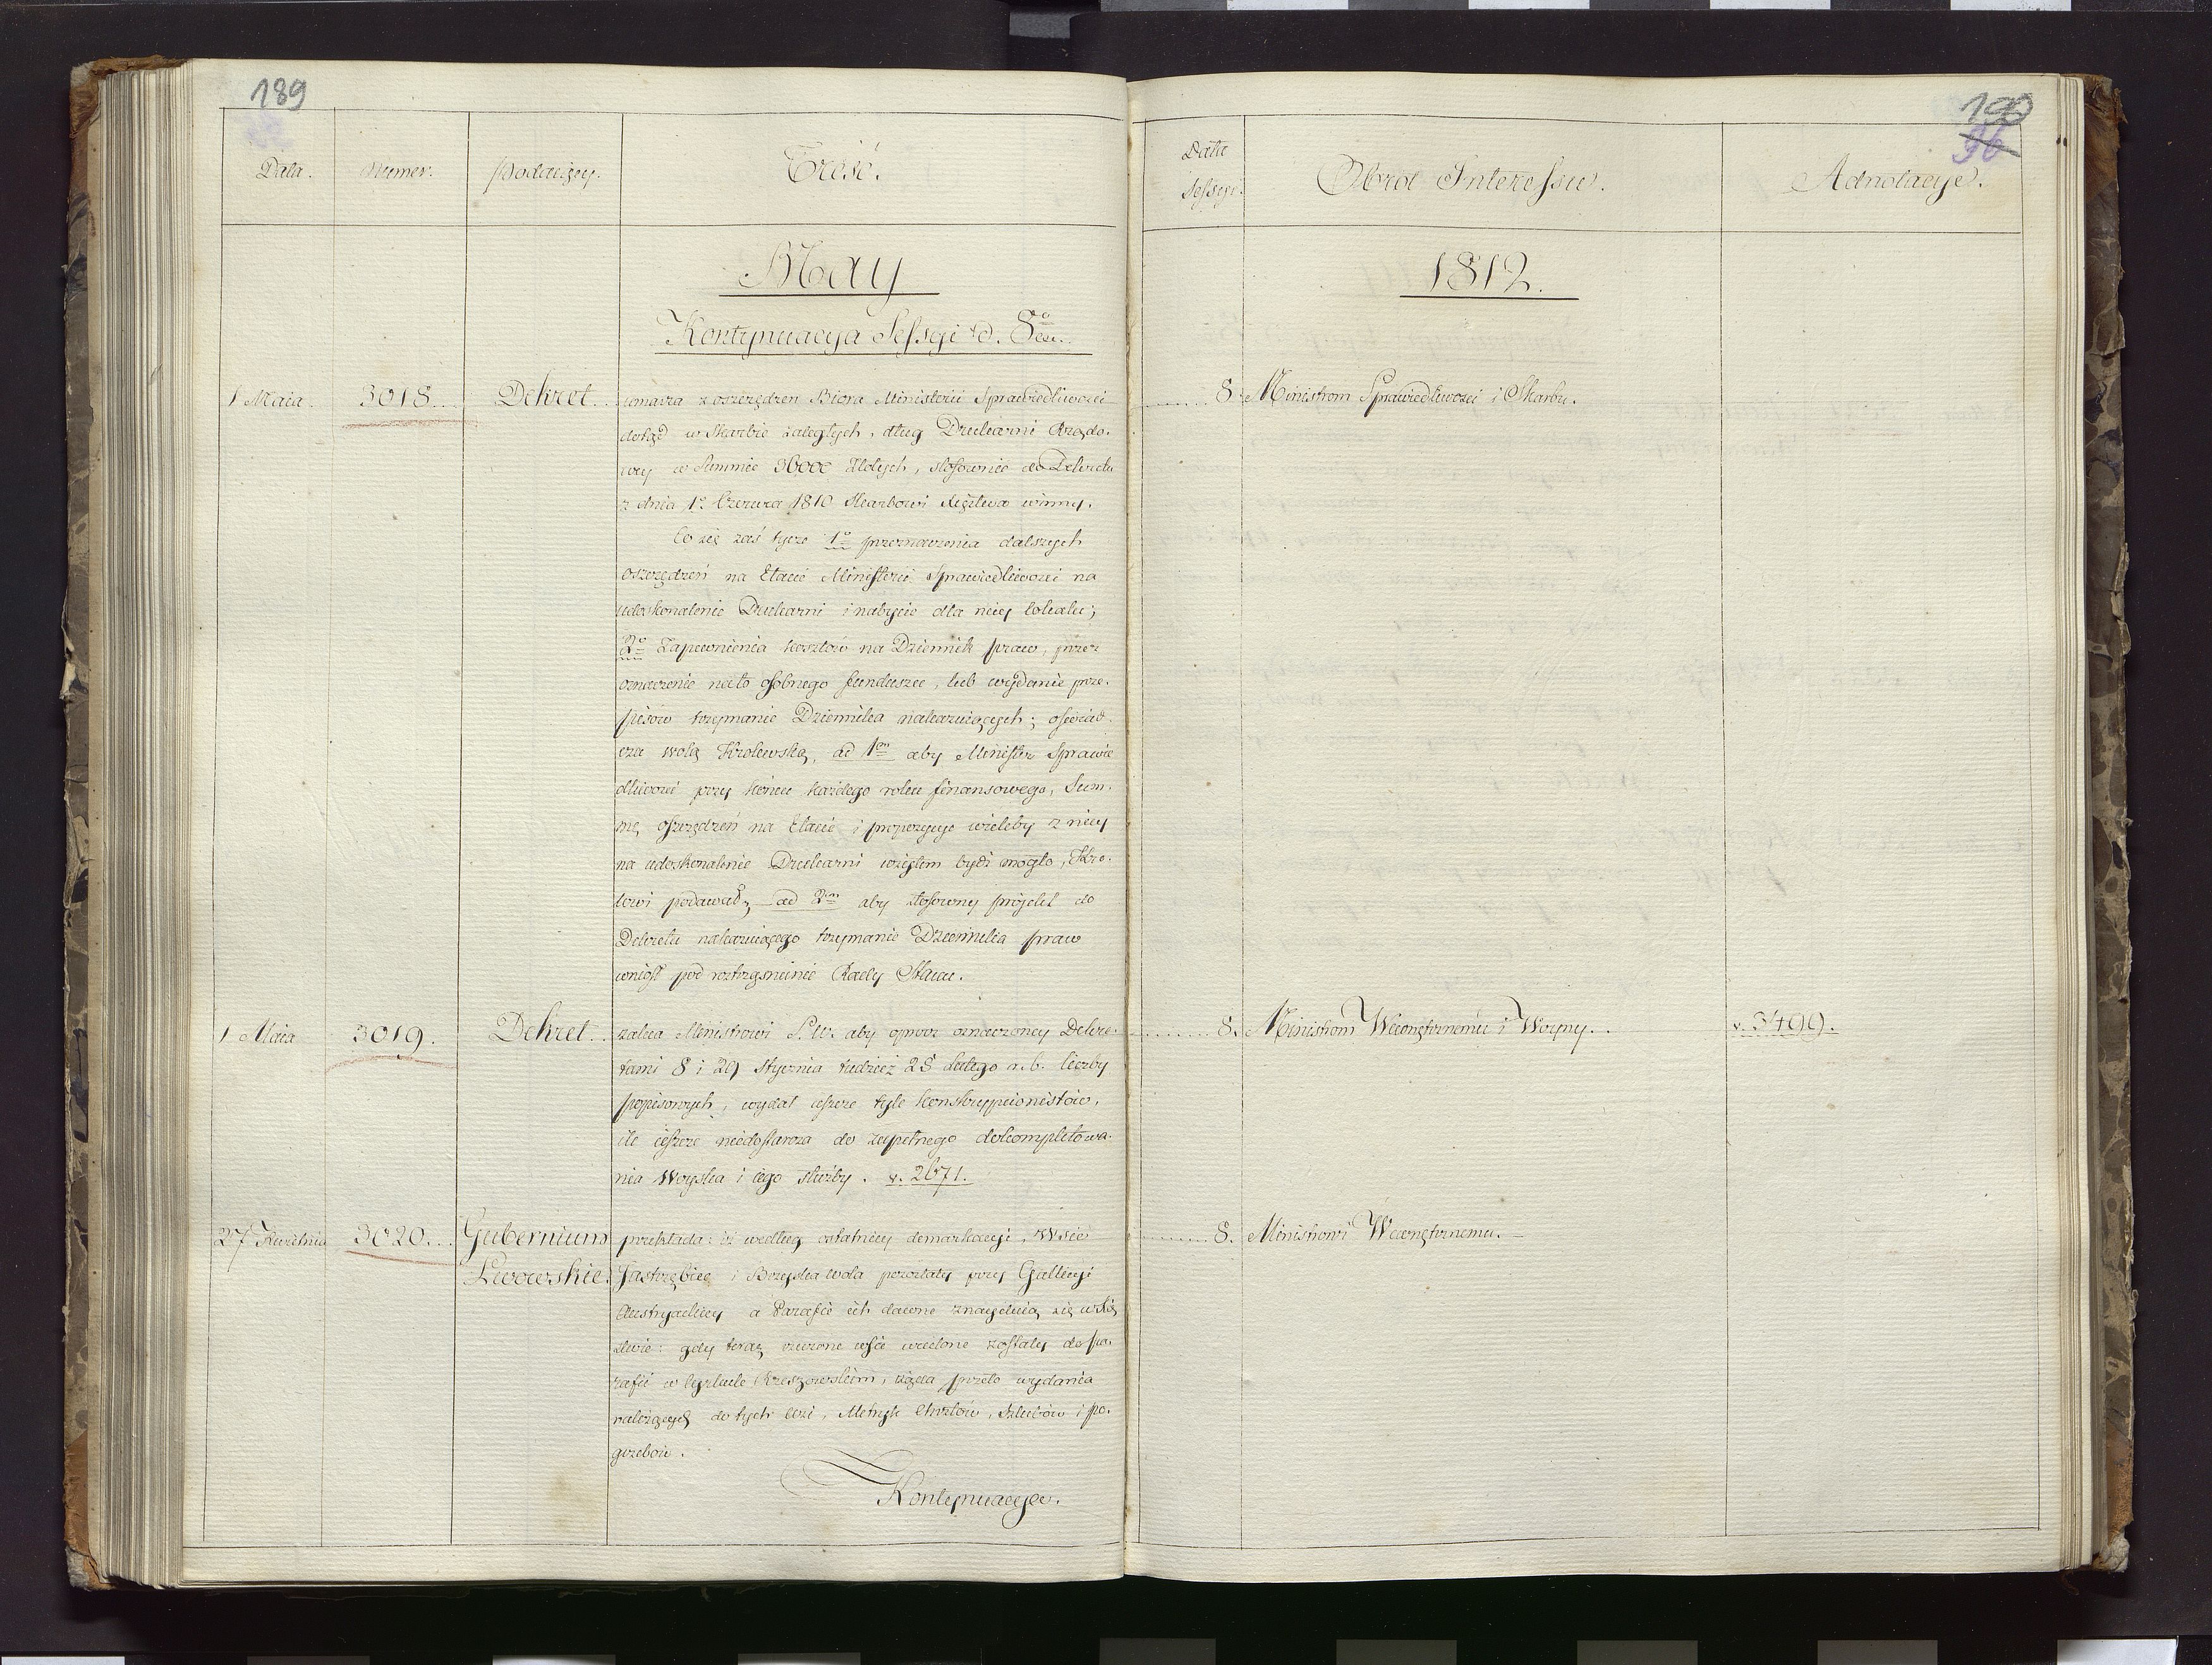 189
Data.
Numer.
Podaiący.
Treść.
May
Kontynuacya Sessyi d. 8º
1 Maia. 3018. Dekret umarza z oszczędzeń Biora Ministerii Sprawiedliwości
dotąd w Skarbie zaległych, dług Drukarni Rządo-
wey w Summie 36000 Złotych, stosownie do Dekretu
z dnia 1º Czerwca 1810 Skarbowi Xięztwa winny.
Co się zaś tycze 1º przeznaczenia dalszych
oszczędzeń na Etacie Ministerii Sprawiedliwości na
udoskonalenie Drukarni i nabycie dla niey lokalu;
2º Zapewnienia kosztów na Dziennik praw, przez
oznaczenie na to osobnego funduszu, lub wydanie prze-
pisów trzymanie Dziennika nakazuiących; oświad-
cza wolą Krolewską, ad 1m aby Minister Sprawie
dliwości przy końcu każdego roku finansowego, Sum-
mę oszczędzeń na Etacie i propozycye wieleby z niey
na udoskonalenie Drukarni wziętem bydź mogło, Kro-
lowi podawał, ad 2m aby stosowny proiekt do
Dekretu nakazuiącego trzymanie Dziennika praw
wniósł pod roztrząśnienie Rady Stanu.
1 Maia 3019. Dekret zaleca Ministrowi S.W. aby oprocz oznaczoney Dekre-
tami 8 i 29 Stycznia tudzież 28 Lutego r. b. liczby
popisowych, wydał ieszcze tyle konskrypcionistów,
ile ieszcze niedostarcza do zupełnego dokompletowa-
nia Woyska i iego służby. v. 2671.
27 Kwietnia 3020. Gubernium przekłada: iż według ostatniey demarkacyi, wsie
Lwowskie. Jastrzębiec i Brzyska wola pozostały przy Gallicyi
Austryackiey a Parafie ich dawne znayduią się w Xię
ztwie: gdy teraz rzeczone wsie wcielone zostały do pa-
rafii w Cyrkule Rzeszowskim, żąda przeto wydania
należących do tych wsi, Metryk Chrztów, Szlubów i po-
grzebów.
Kontynuacya.
190
96
Data
Sessyi.
Obrot Interessu.
Adnotacye.
1812.
8. Ministrom Sprawiedliwości i Skarbu.
8. Ministrom Wewnętrznemu i Woyny. v. 3499.
8. Ministrowi Wewnętrznemu.